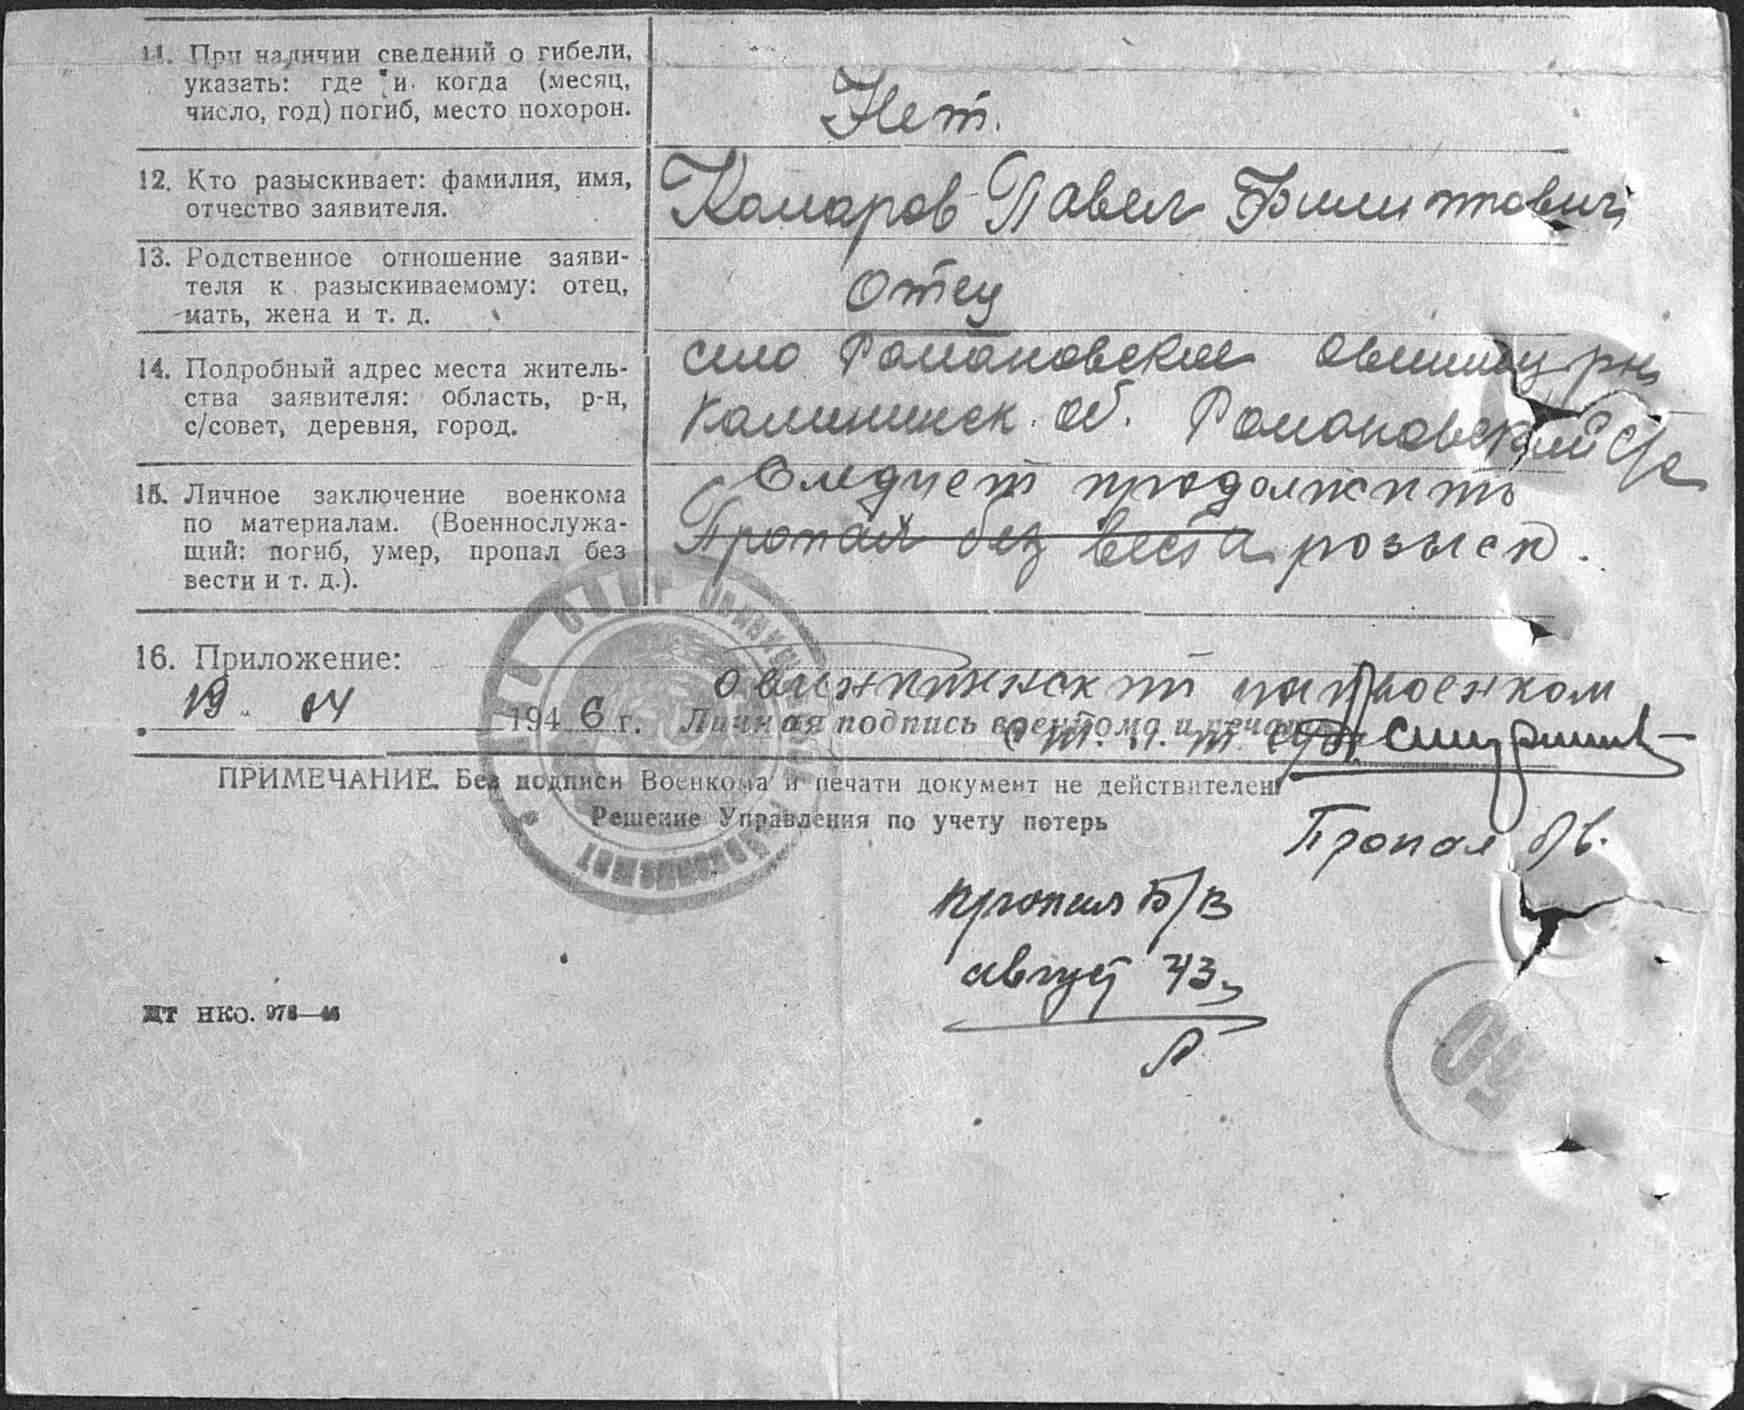 11. При наличии сведений о гибели,
указать: где и когда (месяц,
число, год) погиб, место похорон.
Нет.
12. Кто разыскивает: фамилия, имя,
отчество заявителя.
Комаров Павел Филиппович
13. Родственное отношение заяви-
теля к разыскиваемому: отец,
мать, жена и т. д.
Отец
14. Подробный адрес места житель-
ства заявителя: область, р-н,
с/совет, деревня, город.
село Романовское Овинищ р-н
Калининск. об. Романовский с/с
15. Личное заключение военкома
по материалам. (Военнослужа-
щий: погиб, умер, пропал без
вести и т. д.).
Следует продолжить
Пропал без веста розыск.
16. Приложение:
Овинищенский райвоенком
19 04 1946 г. Личная подпись военкома и печать
ПРИМЕЧАНИЕ. Без подписи Военкома и печати документ не действителен
Решение Управления по учету потерь
Пропал б/в.
пропал Б/В
август 43 г
ЦТ НКО. 976—46